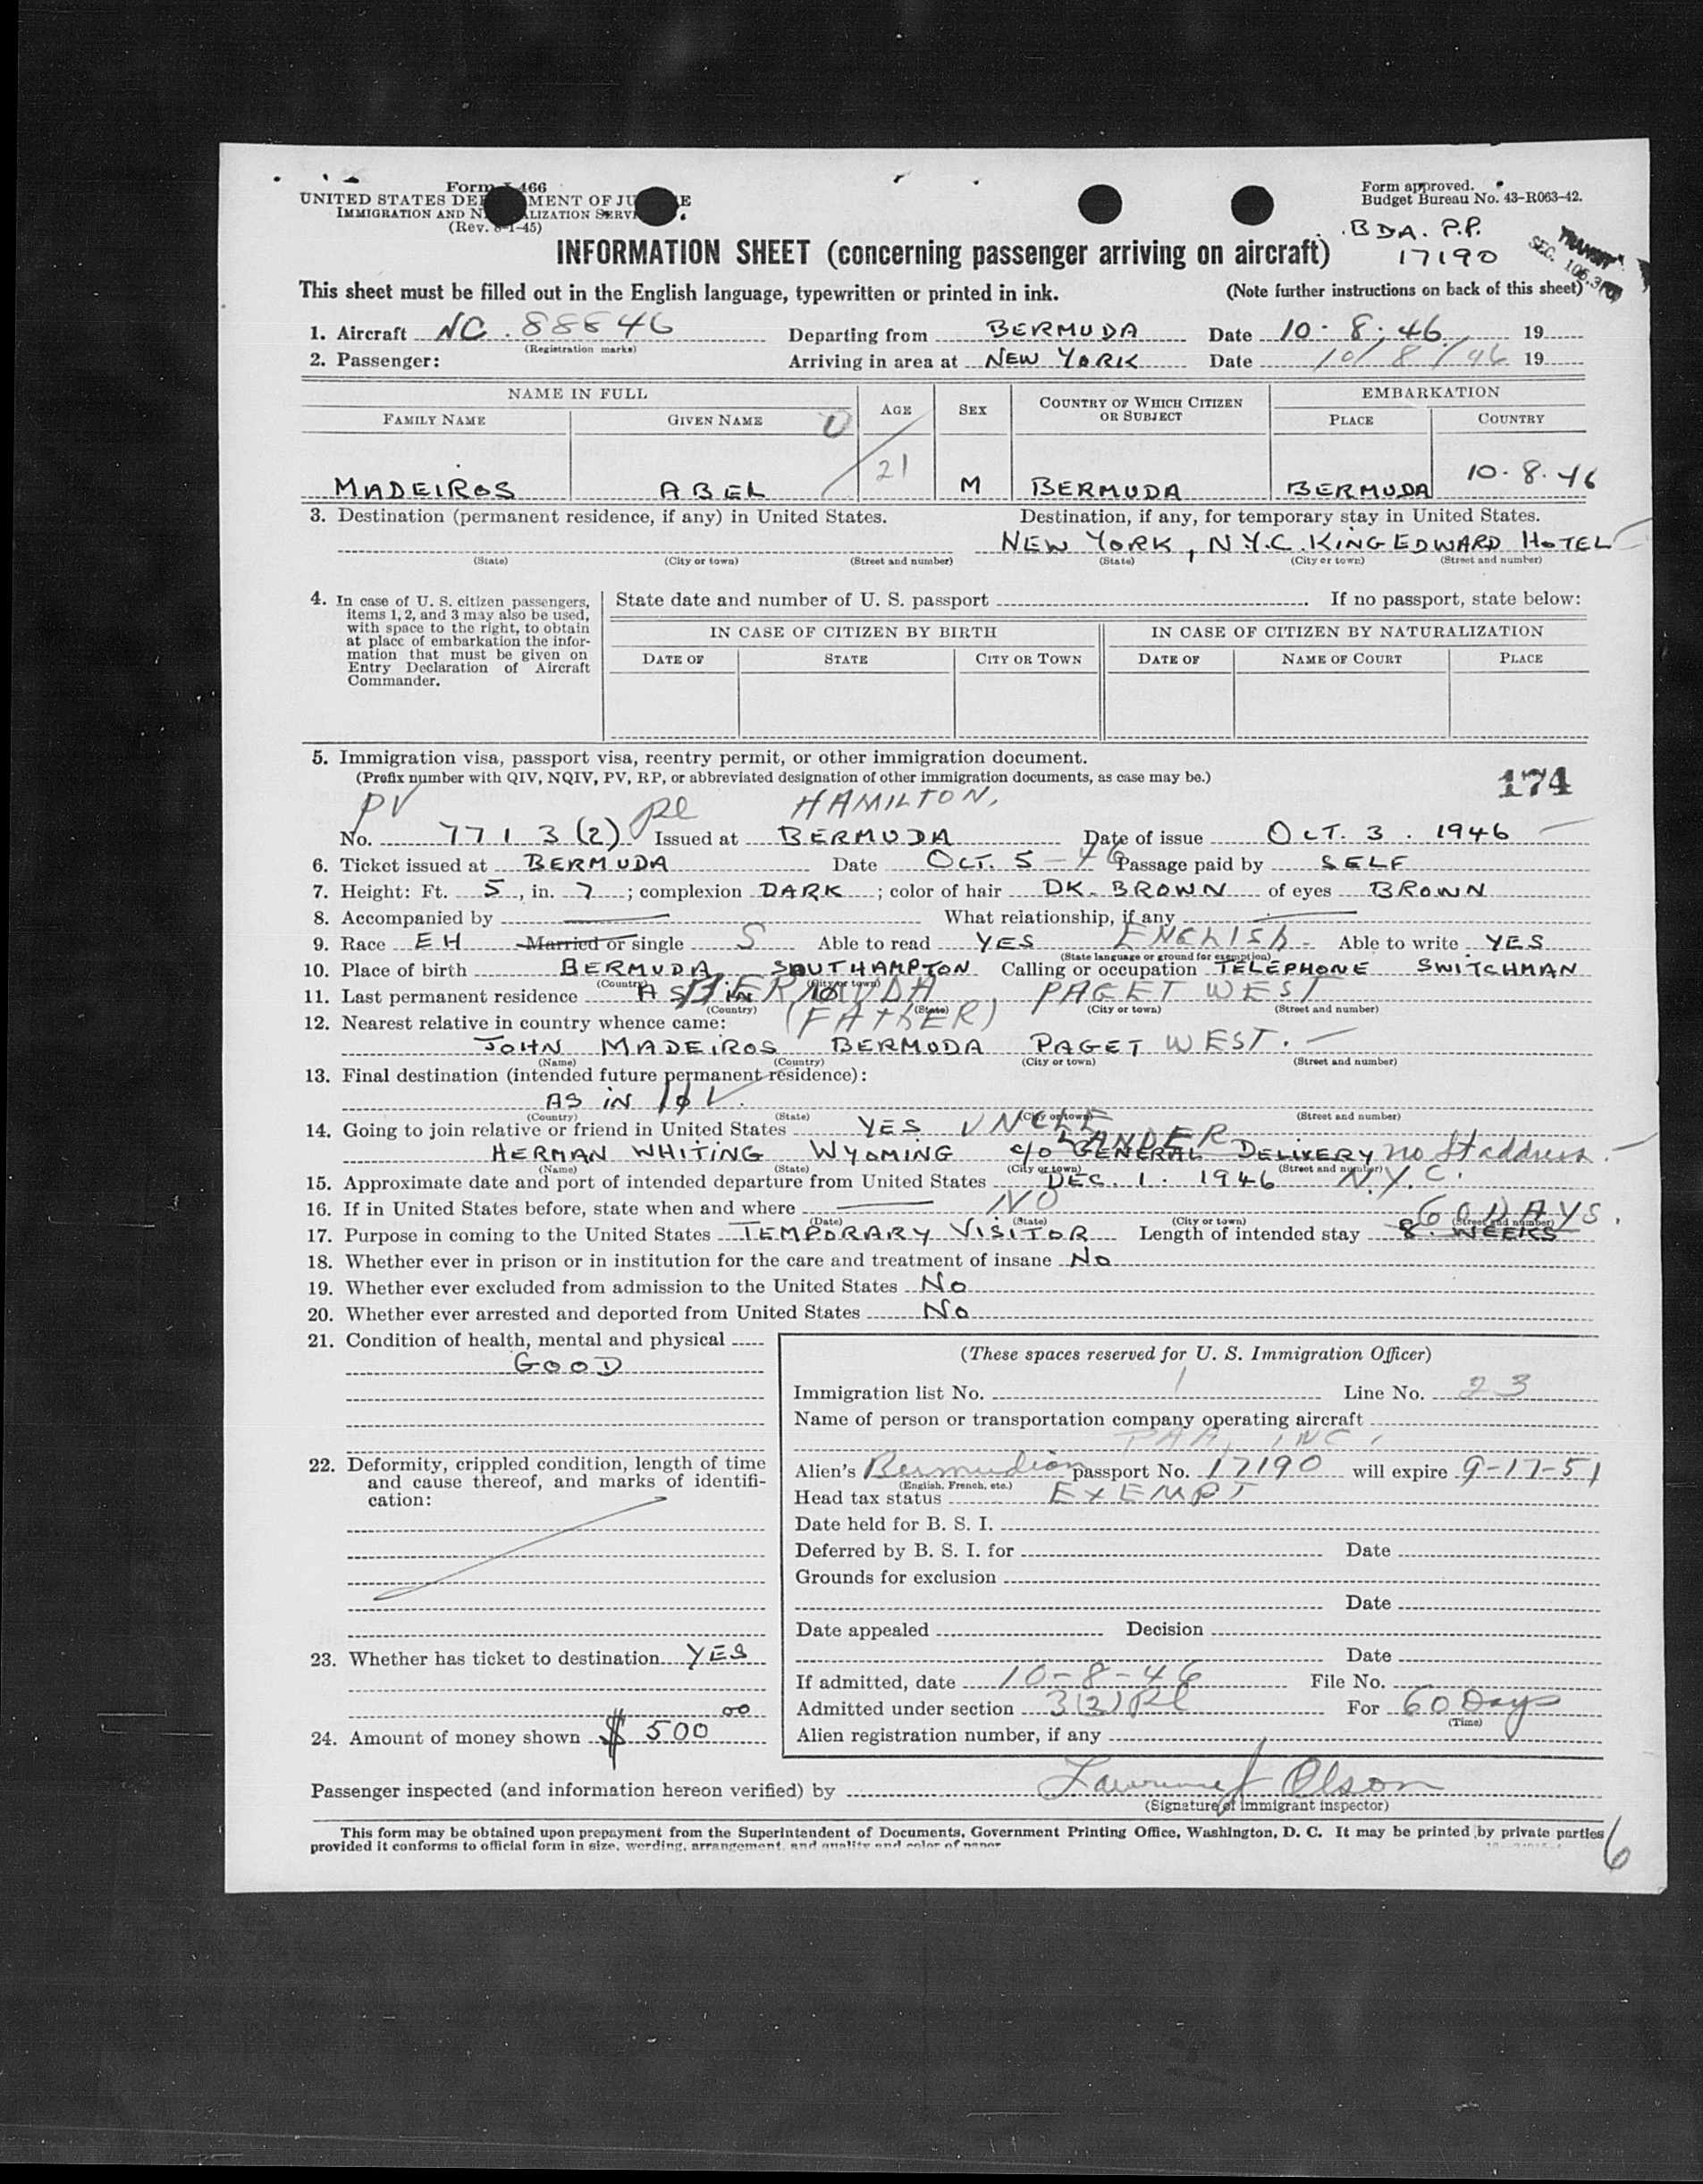 Form I-466
UNITED STATES DEPARTMENT OF JUSTICE
IMMIGRATION AND NATURALIZATION SERVICE
(Rev. 8-1-45)
Form approved.
Budget Bureau No. 43-R063-42.
BDA. P.P.
17190
TRANSIT
SEC. 105.3
INFORMATION SHEET (concerning passenger arriving on aircraft)
This sheet must be filled out in the English language, typewritten or printed in ink. (Note further instructions on back of this sheet)
1. Aircraft NC. 88846 Departing from BERMUDA Date 10. 8. 46. 19
(Registration marks)
2. Passenger: Arriving in area at NEW YORK Date 10/8/46 19
NAME IN FULL AGE SEX COUNTRY OF WHICH CITIZEN OR SUBJECT EMBARKATION
FAMILY NAME GIVEN NAME PLACE COUNTRY
MADEIROS ABEL 21 M BERMUDA BERMUDA 10. 8. 46
3. Destination (permanent residence, if any) in United States. Destination, if any, for temporary stay in United States.
NEW YORK, N.Y.C. KING EDWARD HOTEL
(State) (City or town) (Street and number) (State) (City or town) (Street and number)
4. In case of U. S. citizen passengers, items 1, 2, and 3 may also be used, with space to the right, to obtain at place of embarkation the information that must be given on Entry Declaration of Aircraft Commander.
State date and number of U. S. passport If no passport, state below:
IN CASE OF CITIZEN BY BIRTH IN CASE OF CITIZEN BY NATURALIZATION
DATE OF STATE CITY OR TOWN DATE OF NAME OF COURT PLACE
5. Immigration visa, passport visa, reentry permit, or other immigration document.
(Prefix number with QIV, NQIV, PV, RP, or abbreviated designation of other immigration documents, as case may be.)
174
PV Pl HAMILTON,
No. 7713 (2) Issued at BERMUDA Date of issue OCT. 3. 1946
6. Ticket issued at BERMUDA Date OCT. 5 - 46 Passage paid by SELF
7. Height: Ft. 5, in. 7; complexion DARK; color of hair DK. BROWN of eyes BROWN
8. Accompanied by What relationship, if any
9. Race EH Married or single S Able to read YES ENGLISH - Able to write YES
(State language or ground for exemption)
10. Place of birth BERMUDA, SOUTHAMPTON Calling or occupation TELEPHONE SWITCHMAN
(Country) (City or town)
11. Last permanent residence AS IN 10 BERMUDA, PAGET WEST
(Country) (State) (City or town) (Street and number)
12. Nearest relative in country whence came: (FATHER)
JOHN MADEIROS BERMUDA PAGET WEST.
(Name) (Country) (City or town) (Street and number)
13. Final destination (intended future permanent residence):
AS IN
(Country) (State) (City or town) (Street and number)
14. Going to join relative or friend in United States YES UNCLE
LANDER
HERMAN WHITING WYOMING c/o GENERAL DELIVERY no St address.
(Name) (State) (City or town) (Street and number)
15. Approximate date and port of intended departure from United States DEC. 1. 1946 N.Y.C.
16. If in United States before, state when and where NO
(Date) (State) (City or town) (Street and number)
60 DAYS.
17. Purpose in coming to the United States TEMPORARY VISITOR Length of intended stay 8 WEEKS
18. Whether ever in prison or in institution for the care and treatment of insane NO
19. Whether ever excluded from admission to the United States NO
20. Whether ever arrested and deported from United States NO
21. Condition of health, mental and physical
GOOD
22. Deformity, crippled condition, length of time and cause thereof, and marks of identification:
23. Whether has ticket to destination YES
24. Amount of money shown $ 500 00
(These spaces reserved for U. S. Immigration Officer)
Immigration list No. 1 Line No. 23
Name of person or transportation company operating aircraft
PAA, INC.
Alien's Bermudian passport No. 17190 will expire 9-17-51
(English, French, etc.)
Head tax status EXEMPT
Date held for B. S. I.
Deferred by B. S. I. for Date
Grounds for exclusion
Date
Date appealed Decision
Date
If admitted, date 10-8-46 File No.
Admitted under section 3(2) Pl For 60 Days
(Time)
Alien registration number, if any
Passenger inspected (and information hereon verified) by Lawrence J Olson
(Signature of immigrant inspector)
This form may be obtained upon prepayment from the Superintendent of Documents, Government Printing Office, Washington, D. C. It may be printed by private parties
provided it conforms to official form in size, wording, arrangement, and quality and color of paper
6